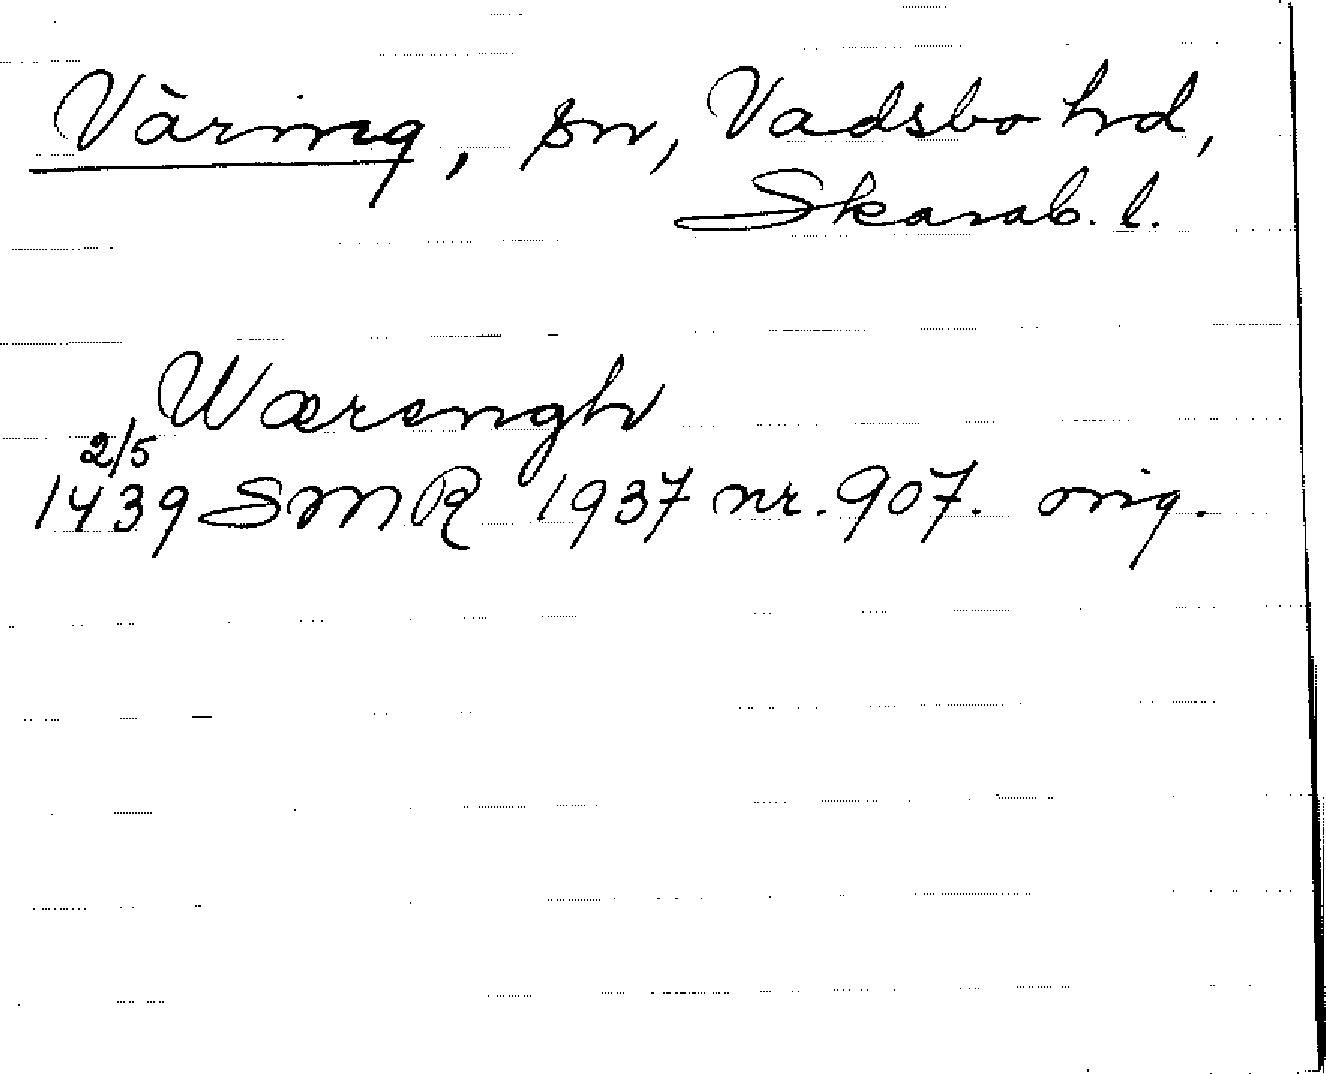 Väring, sn, Vadsbo hd,
Skarab. l.
Wærengh
2/5
1439 SMR 1937 nr. 907. orig.